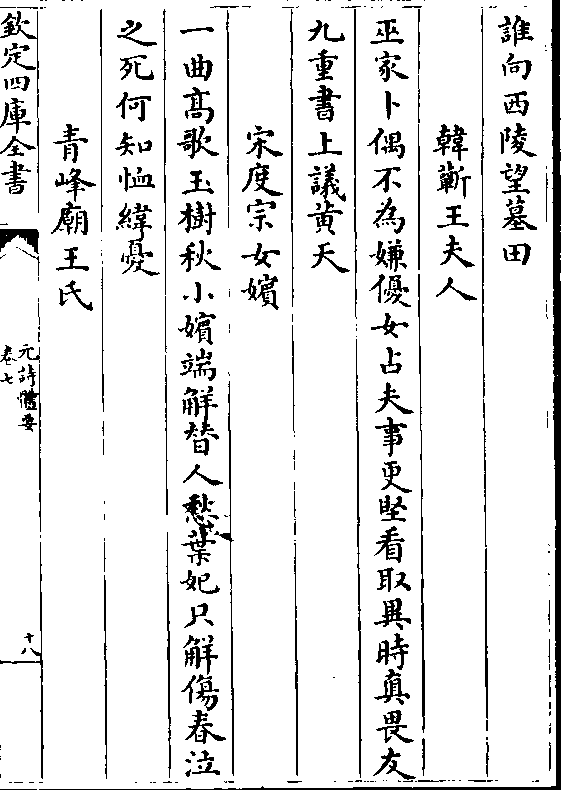 誰向西陵望墓田
韓蘄王夫人
巫家卜偶不為嫌優女占夫事更堅看取異時真畏友
九重書上議黄天
宋度宗女嬪
一曲髙歌玉樹秋小嬪端解替人愁葉妃只解傷春泣
之死何知恤緯憂
青峰廟王氏
欽定四庫全書
元詩體要
卷七
十八